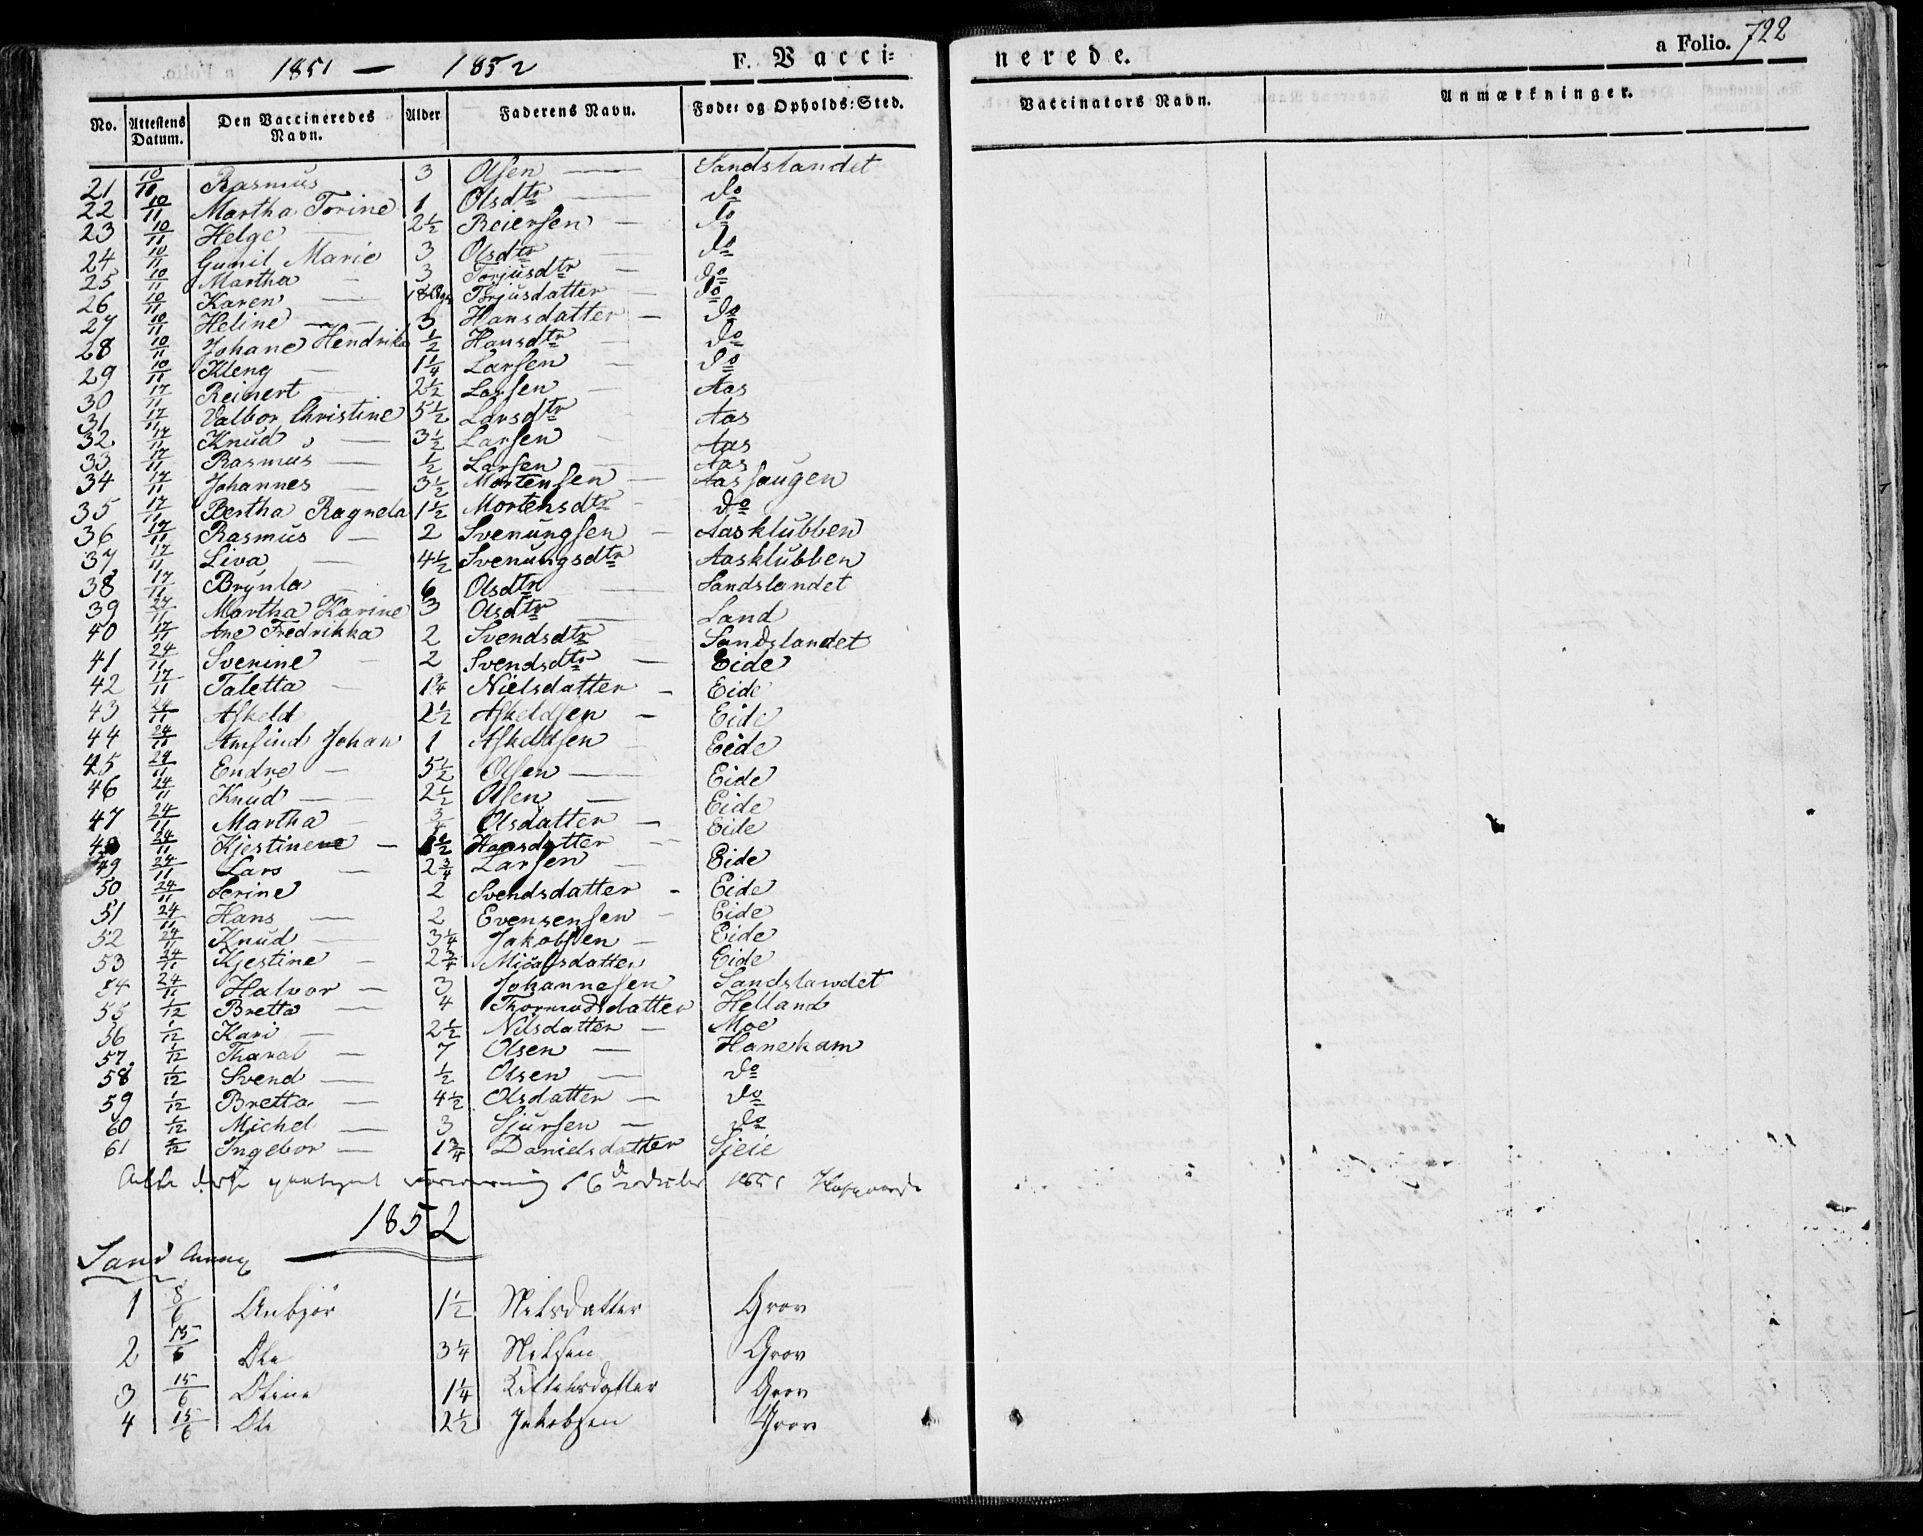 1851 — 1852 F. Vacci=
nerede. a Folio. 722
No. Attestens Datum. Den Vaccineredes Navn. Alder Faderens Navn. Føde: og Opholds: Sted. Vaccinators Navn. Anmærkninger.
21 10/11 Rasmus 3 Olsen — Sandslandet
22 10/11 Martha Torine 1 Olsdtr — do
23 10/11 Helge 2½ Reiersen — do
24 10/11 Gunil Marie 3 Olsdtr — do
25 10/11 Martha 3 Torjusdtr — do
26 10/11 Karen — 18 Torjusdatter — do
27 10/11 Heline — 3 Hansdatter — do
28 10/11 Johane Hendrika ½ Hansdtr — do
29 10/11 Kleng — 1¼ Larsen — do
30 17/11 Reinert — 2½ Larsen — Aas
31 17/11 Valbor Christine 5½ Larsdtr Aas
32 17/11 Knud — 3½ Larsen — Aas
33 17/11 Rasmus — ½ Larsen Aas
34 17/11 Johannes — 3½ Mortensen — Aashaugen
35 17/11 Bertha Ragnela 1½ Mortensdtr — do
36 17/11 Rasmus — 2 Svenungsen — Aasklubben
37 17/11 Liva — 4½ Svenungsdtr Aasklubben
38 17/11 Brynla 6 Olsdtr Sandslandet
39 24/11 Martha Karine 3 Olsdtr — Land
40 17/11 Ane Fredrikka 2 Svendsdtr — Sandslandet
41 24/11 Svenine — 2 Svendsdtr — Eide
42 17/11 Taletta — 1¾ Nielsdatter — Eide
43 24/11 Askeld 2½ Askeldsen — Eide
44 24/11 Amfind Johan 1 Askeldsen Eide
45 24/11 Endre — 5½ Olsen — Eide
46 24/11 Knud — 2½ Olsen — Eide
47 24/11 Martha — ¾ Olsdatter — Eide
48 24/11 Kjestine — 1½ Hansdatter — Eide
49 24/11 Lars — 2¾ Larsen — Eide
50 24/11 Serine 2 Svendsdatter — Eide
51 24/11 Hans — 2 Evensensen — Eide
52 24/11 Knud — 3¼ Jakobsen — Eide
53 24/11 Kjestine — 2¾ Micalsdatter Eide
54 24/11 Halvor — 3 Johannesen Sandslandet
55 1/12 Bretta — 4 Thormodsdatter Helland
56 1/12 Kari — 2½ Nilsdatter — Moe
57 1/12 Tharal — 7 Olsen — Hanekam
58 1/12 Svend — ½ Olsen — do
59 1/12 Bretta — 4½ Olsdatter — do
60 1/12 Michel — 3 Sjursen — do
61 Ingebor — 1¾ Danielsdatter Sjeie
1852
Sand
1 8/6 Anbjør 1½ Nilsdatter Grov
2 15/6 Ole 3¼ Nilsen Grov
3 15/6 Oline 1¼ Kittelsdatter Grov
4 15/6 Ole 2½ Jakobsen Grov